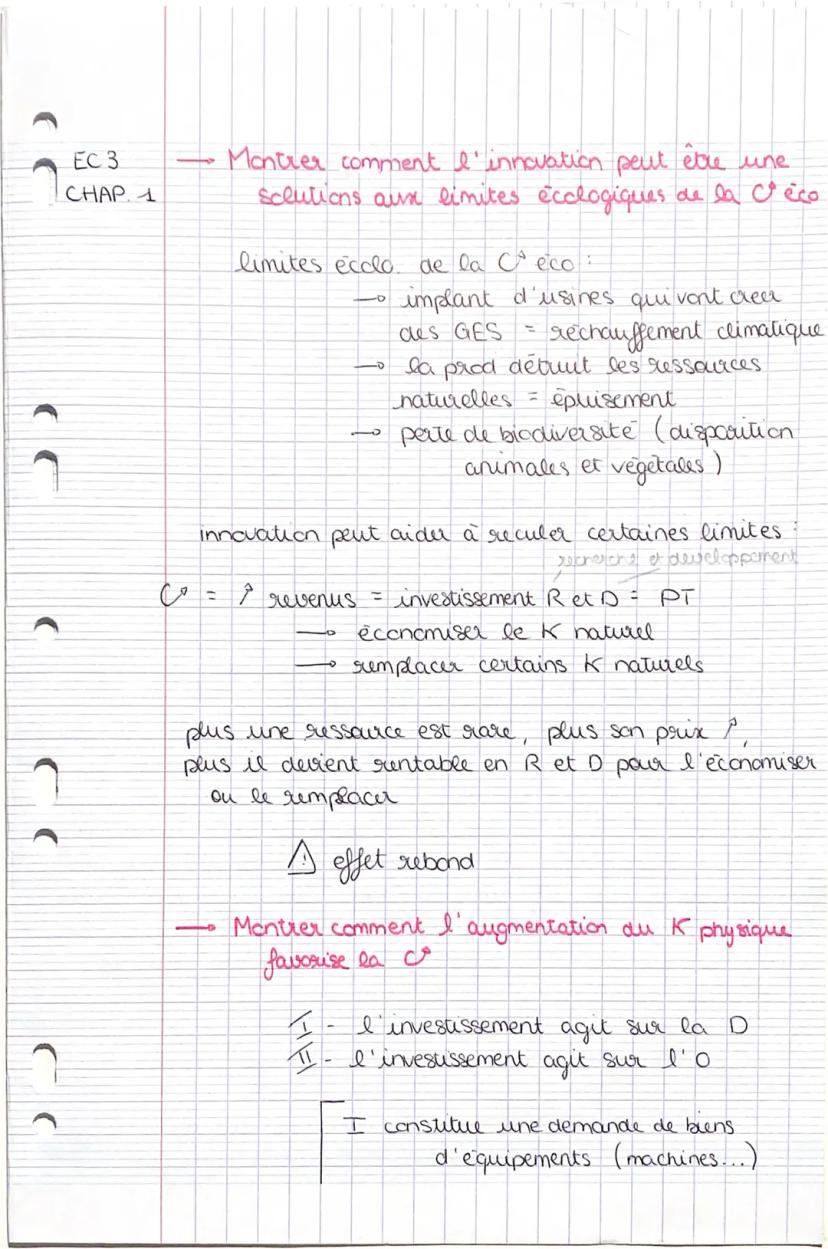 EC3 → Montrer comment l'innovation peut être une
CHAP. 1 solutions aux limites écologiques de la C↗ éco
limites écolo. de la C↗ éco :
→ implant d'usines qui vont creer
des GES = réchauffement climatique
→ la prod détruit les ressources
naturelles = épuisement
→ perte de biodiversité (disparition
animales et végétales)
innovation peut aider à reculer certaines limites :
recherche et developpement
C↗ = ↗ revenus = investissement R et D = PT
→ économiser le K naturel
→ remplacer certains K naturels
plus une ressource est rare, plus son prix ↗,
plus il devient rentable en R et D pour l'économiser
ou le remplacer
⚠ effet rebond
→ Montrer comment l'augmentation du K physique
favorise la C↗
I - l'investissement agit sur la D
II - l'investissement agit sur l'O
I constitue une demande de biens
d'équipements (machines...)